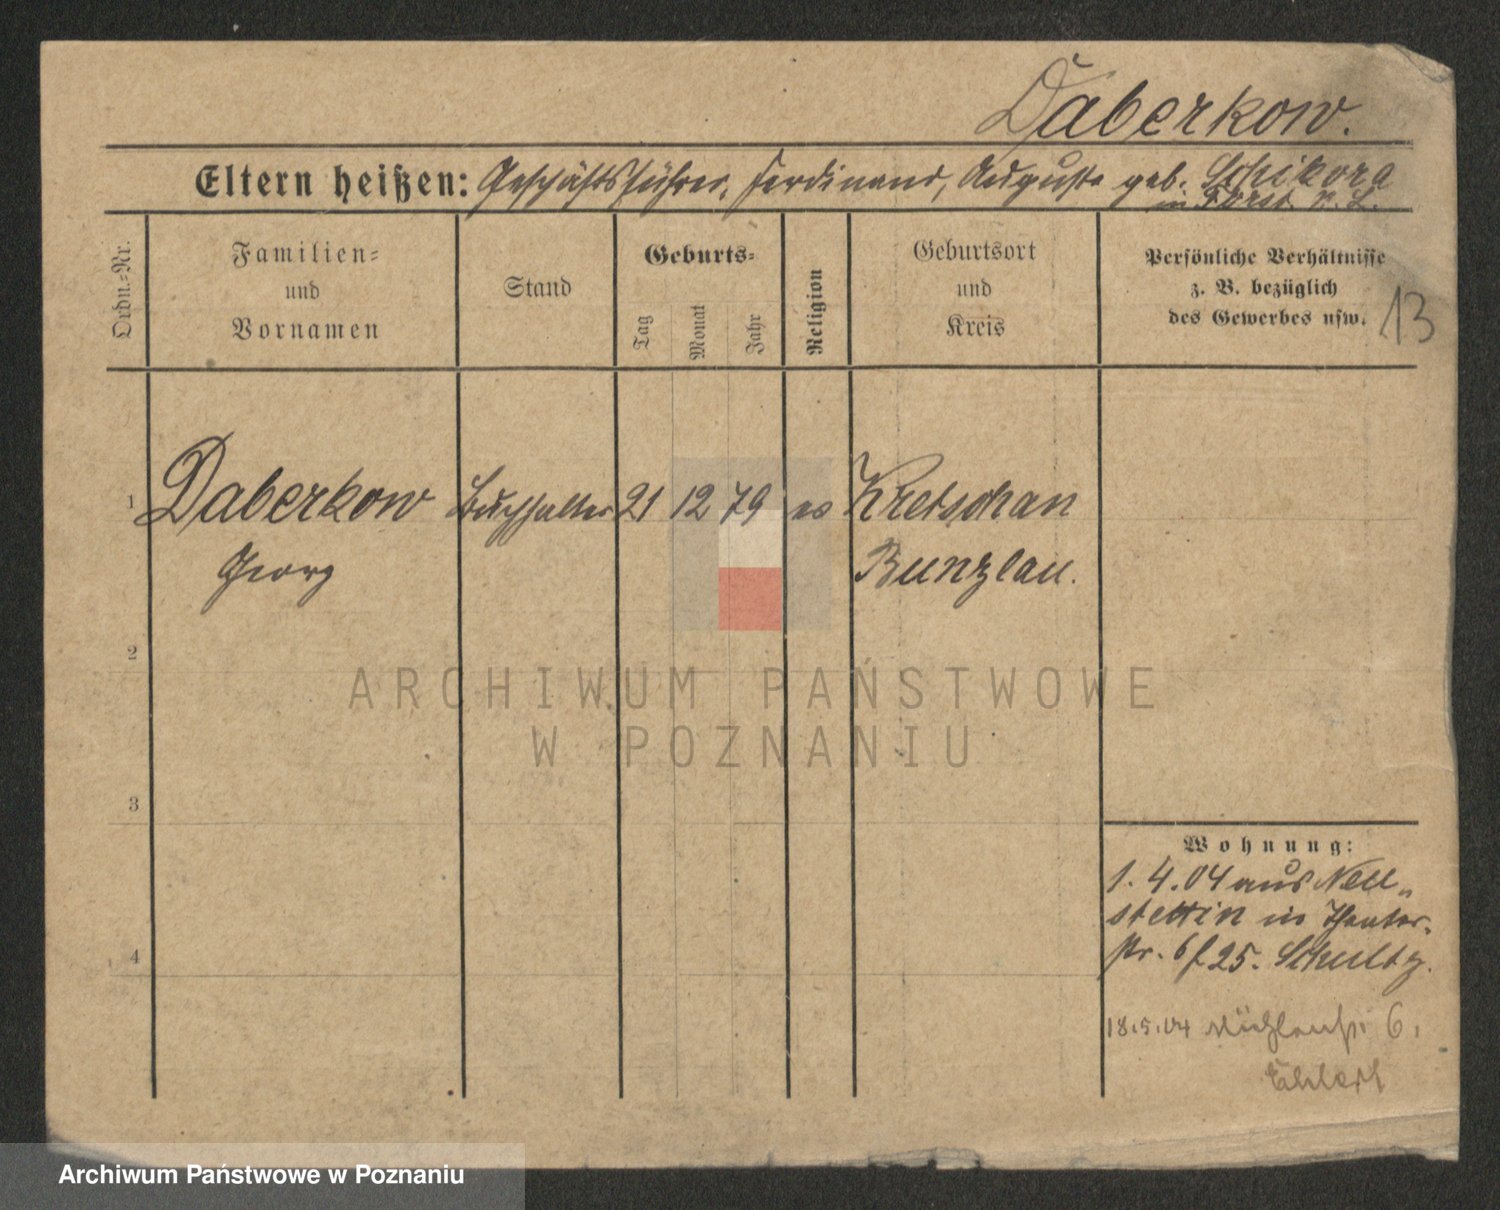 Daberkow.
Eltern heißen: Geschäftsführer, Ferdinand, Auguste geb. Schikora
in Forst n. L.
Ordn.-Nr.
Familien-
und
Vornamen
Stand
Geburts-
Tag
Monat
Jahr
Religion
Geburtsort
und
Kreis
Persönliche Verhältnisse
z. B. bezüglich
des Gewerbes usw.
13
1 Daberkow Buchhalter 21 12 79 ev Kretschan
Georg Bunzlau.
2
ARCHIWUM PAŃSTWOWE
W POZNANIU
3
Wohnung:
1. 4. 04 aus Neu-
stettin in Theater-
str. 6 f 25. Schultz.
4
18.5.04 Mühlenstr. 6.
Archiwum Państwowe w Poznaniu